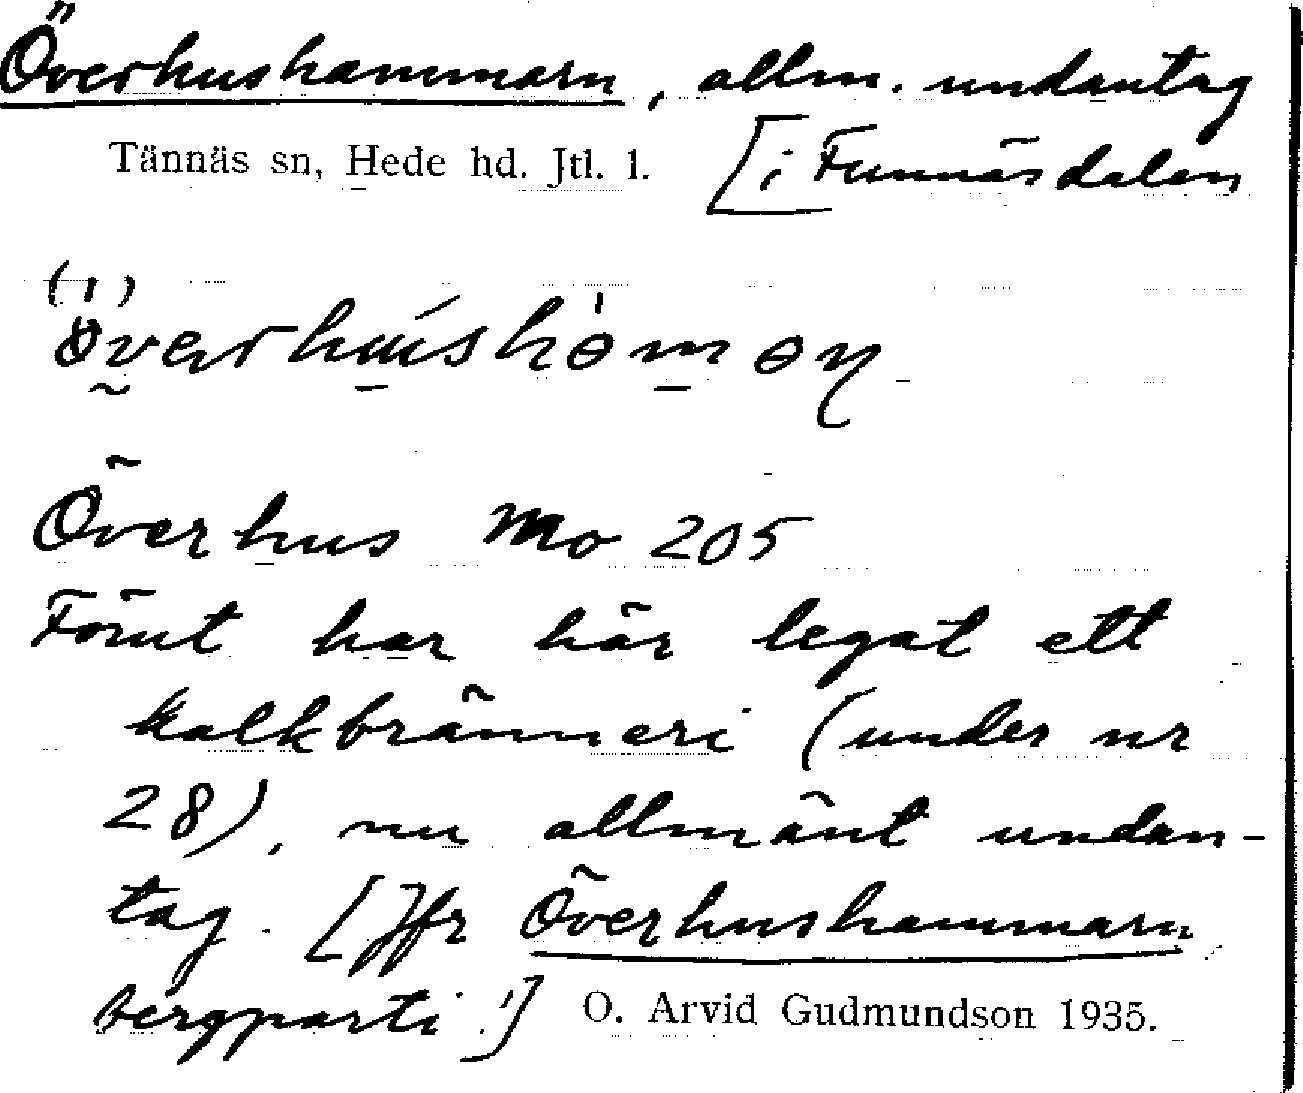 Överhushammarn, allm. undantag
Tännäs sn, Hede hd. Jtl. l. [i Funnäsdalen
Överhus Mo 205
Förut har här legat ett
kalkbränneri (under nr
28), nu allmänt undan-
tag. [Jfr Överhushammarn
bergparti!] O. Arvid Gudmundson 1935.